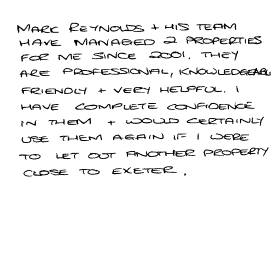 MARK REYNOLDS + HIS TEAM
HAVE MANAGED 2 PROPERTIES
FOR ME SINCE 2001. THEY
ARE PROFESSIONAL, KNOWLEDGEABLE
FRIENDLY + VERY HELPFUL. I
HAVE COMPLETE CONFIDENCE
IN THEM + WOULD CERTAINLY
USE THEM AGAIN IF I WERE
TO LET OUT ANOTHER PROPERTY
CLOSE TO EXETER.